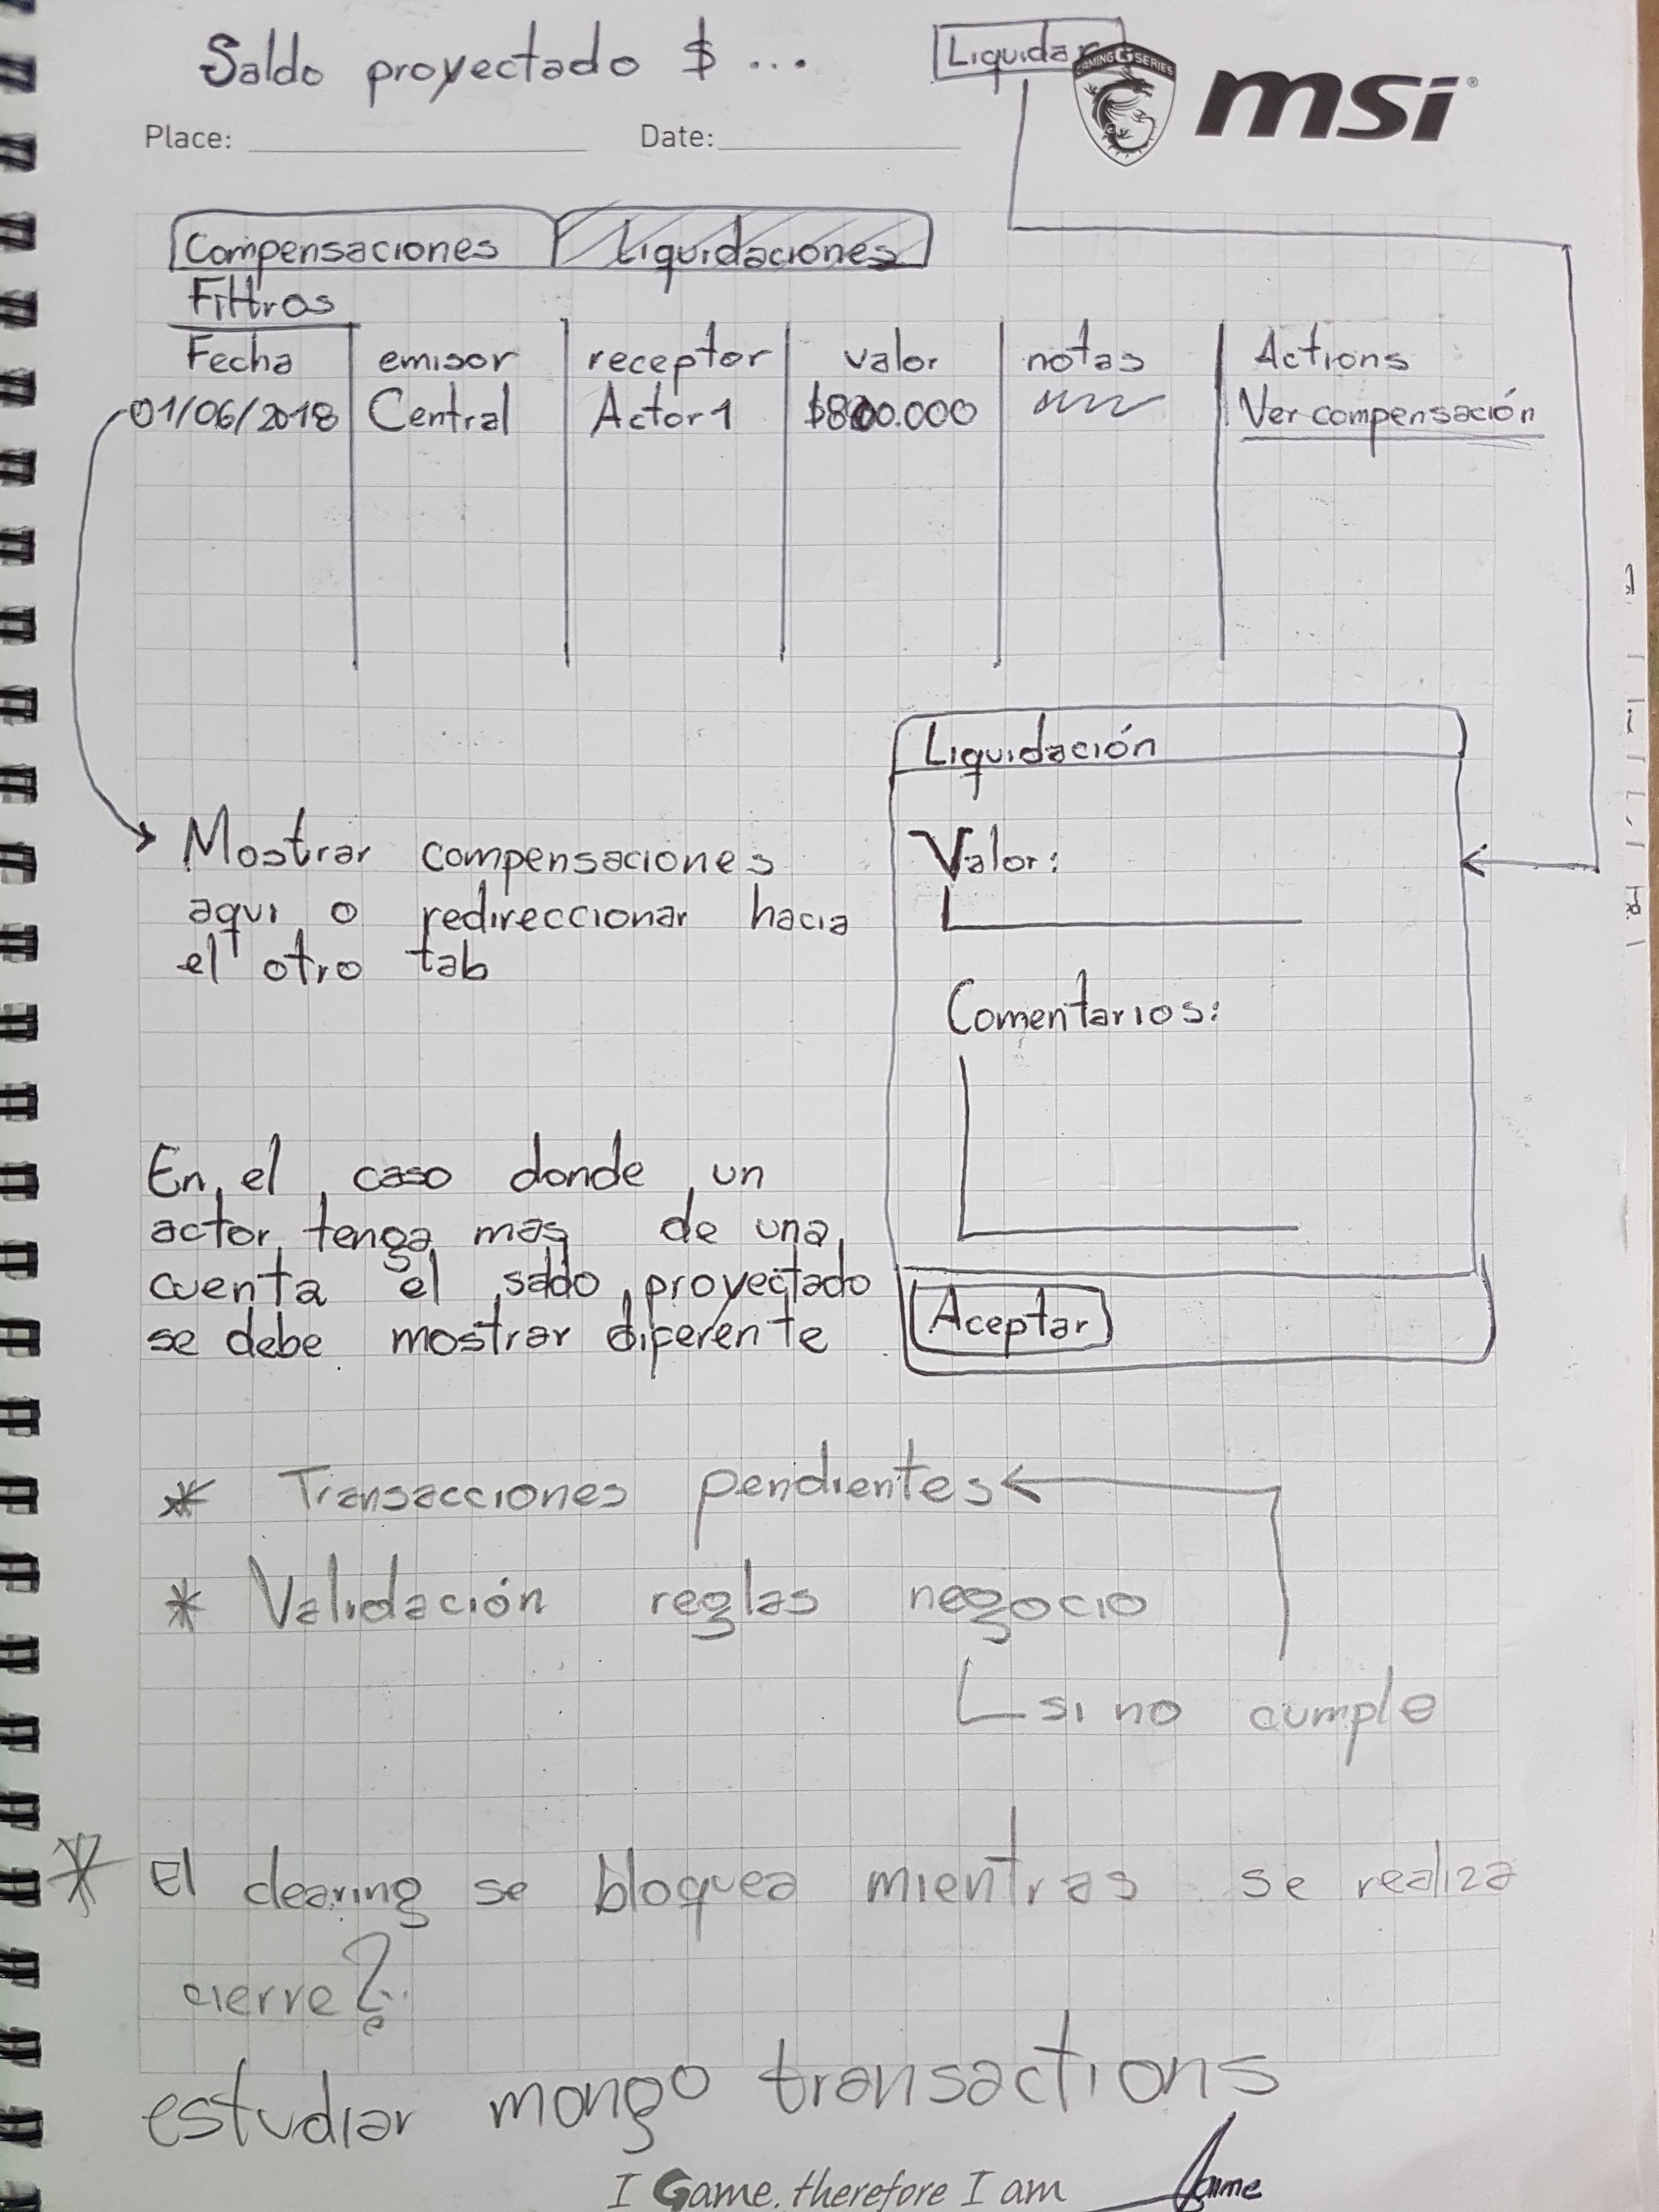 Saldo proyectado $ ...
Liquidar
GAMING G SERIES
msi
Place:
Date:
Compensaciones
Liquidaciones
Filtros
Fecha
emisor
receptor
valor
notas
Actions
01/06/2018
Central
Actor 1
$800.000
Ver compensación
Mostrar compensaciones
aqui o redireccionar hacia
el otro tab
Liquidación
Valor:
Comentarios:
Aceptar
En el caso donde un
actor tenga mas de una
cuenta el saldo proyectado
se debe mostrar diferente
* Transacciones pendientes
* Validación reglas negocio
si no cumple
* El clearing se bloquea mientras se realiza
cierre?
estudiar mongo transactions
I Game, therefore I am